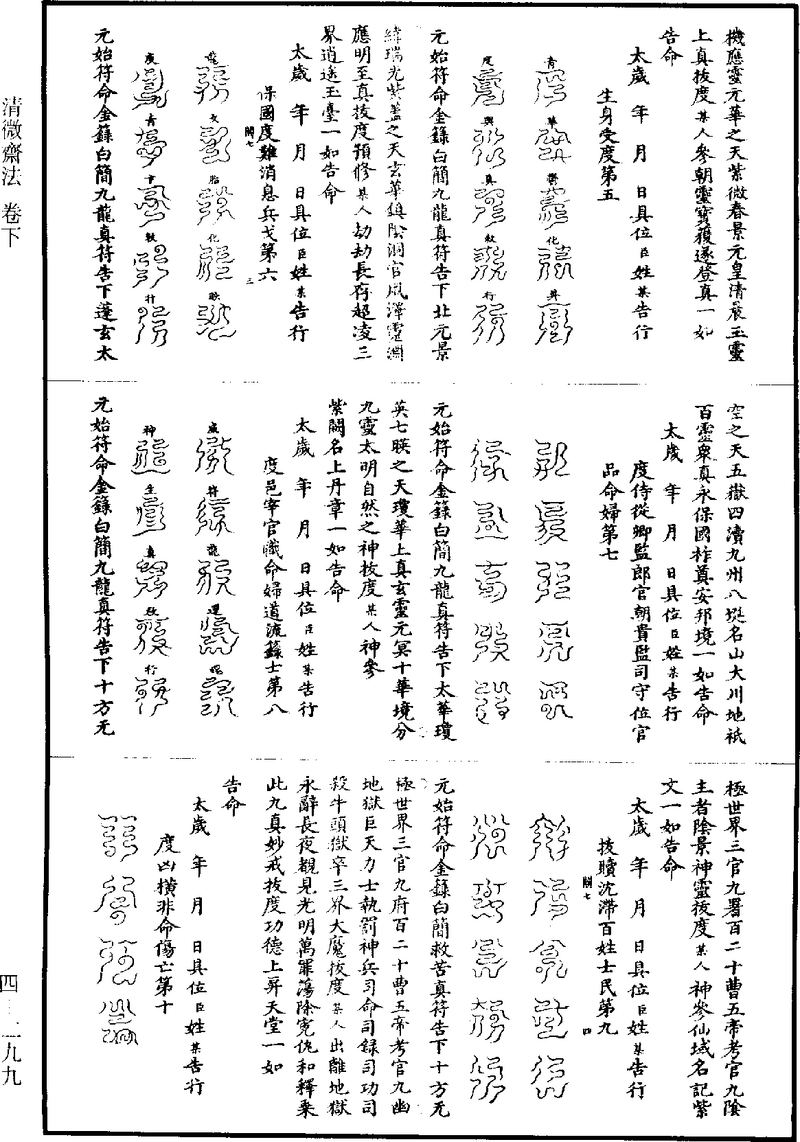 機應靈元華之天紫微春景元皇清晨玉靈
上真拔度某人參朝靈寶獲遂登真一如
告命
太歲 年 月 日具位臣姓某告行
生身受度第五
青 華 鬱 化 昇
度 與 真 敕 行
元始符命金籙白簡九龍真符告下北元景
緯瑞光紫蓋之天玄華鎮陰洞官風澤靈淵
應明至真拔度預修某人劫劫長存超凌三
界逍遙玉臺一如告命
太歲 年 月 日具位臣姓某告行
保國度難消息兵戈第六
關七 三
龍 文 胎 化 映
度 青 十 敕 行
元始符命金籙白簡九龍真符告下蓬玄太
空之天五嶽四瀆九州八極名山大川地祇
百靈衆真永保國祚奠安邦境一如告命
太歲 年 月 日具位臣姓某告行
度侍從卿監郎官朝貴監司守位官
品命婦第七
元始符命金籙白簡九龍真符告下太華瓊
英七映之天瓊華上真玄靈元冥十華境分
九靈太明自然之神拔度某人神參
紫闕名上丹章一如告命
太歲 年 月 日具位臣姓某告行
度邑宰官職命婦道流籙士第八
威 符 龍 運
神 生 真 敕 行
元始符命金籙白簡九龍真符告下十方无
極世界三官九署百二十曹五帝考官九陰
主者陰景神靈拔度某人神參仙域名記紫
文一如告命
太歲 年 月 日具位臣姓某告行
拔贖沈滯百姓士民第九
關七 四
元始符命金籙白簡救苦真符告下十方无
極世界三官九府百二十曹五帝考官九幽
地獄巨天力士執罰神兵司命司録司功司
殺牛頭獄卒三界大魔拔度某人出離地獄
永辭長夜覩見光明萬罪蕩除寃仇和釋乘
此九真妙戒拔度功德上昇天堂一如
告命
太歲 年 月 日具位臣姓某告行
度凶橫非命傷亡第十
清微齋法 卷下